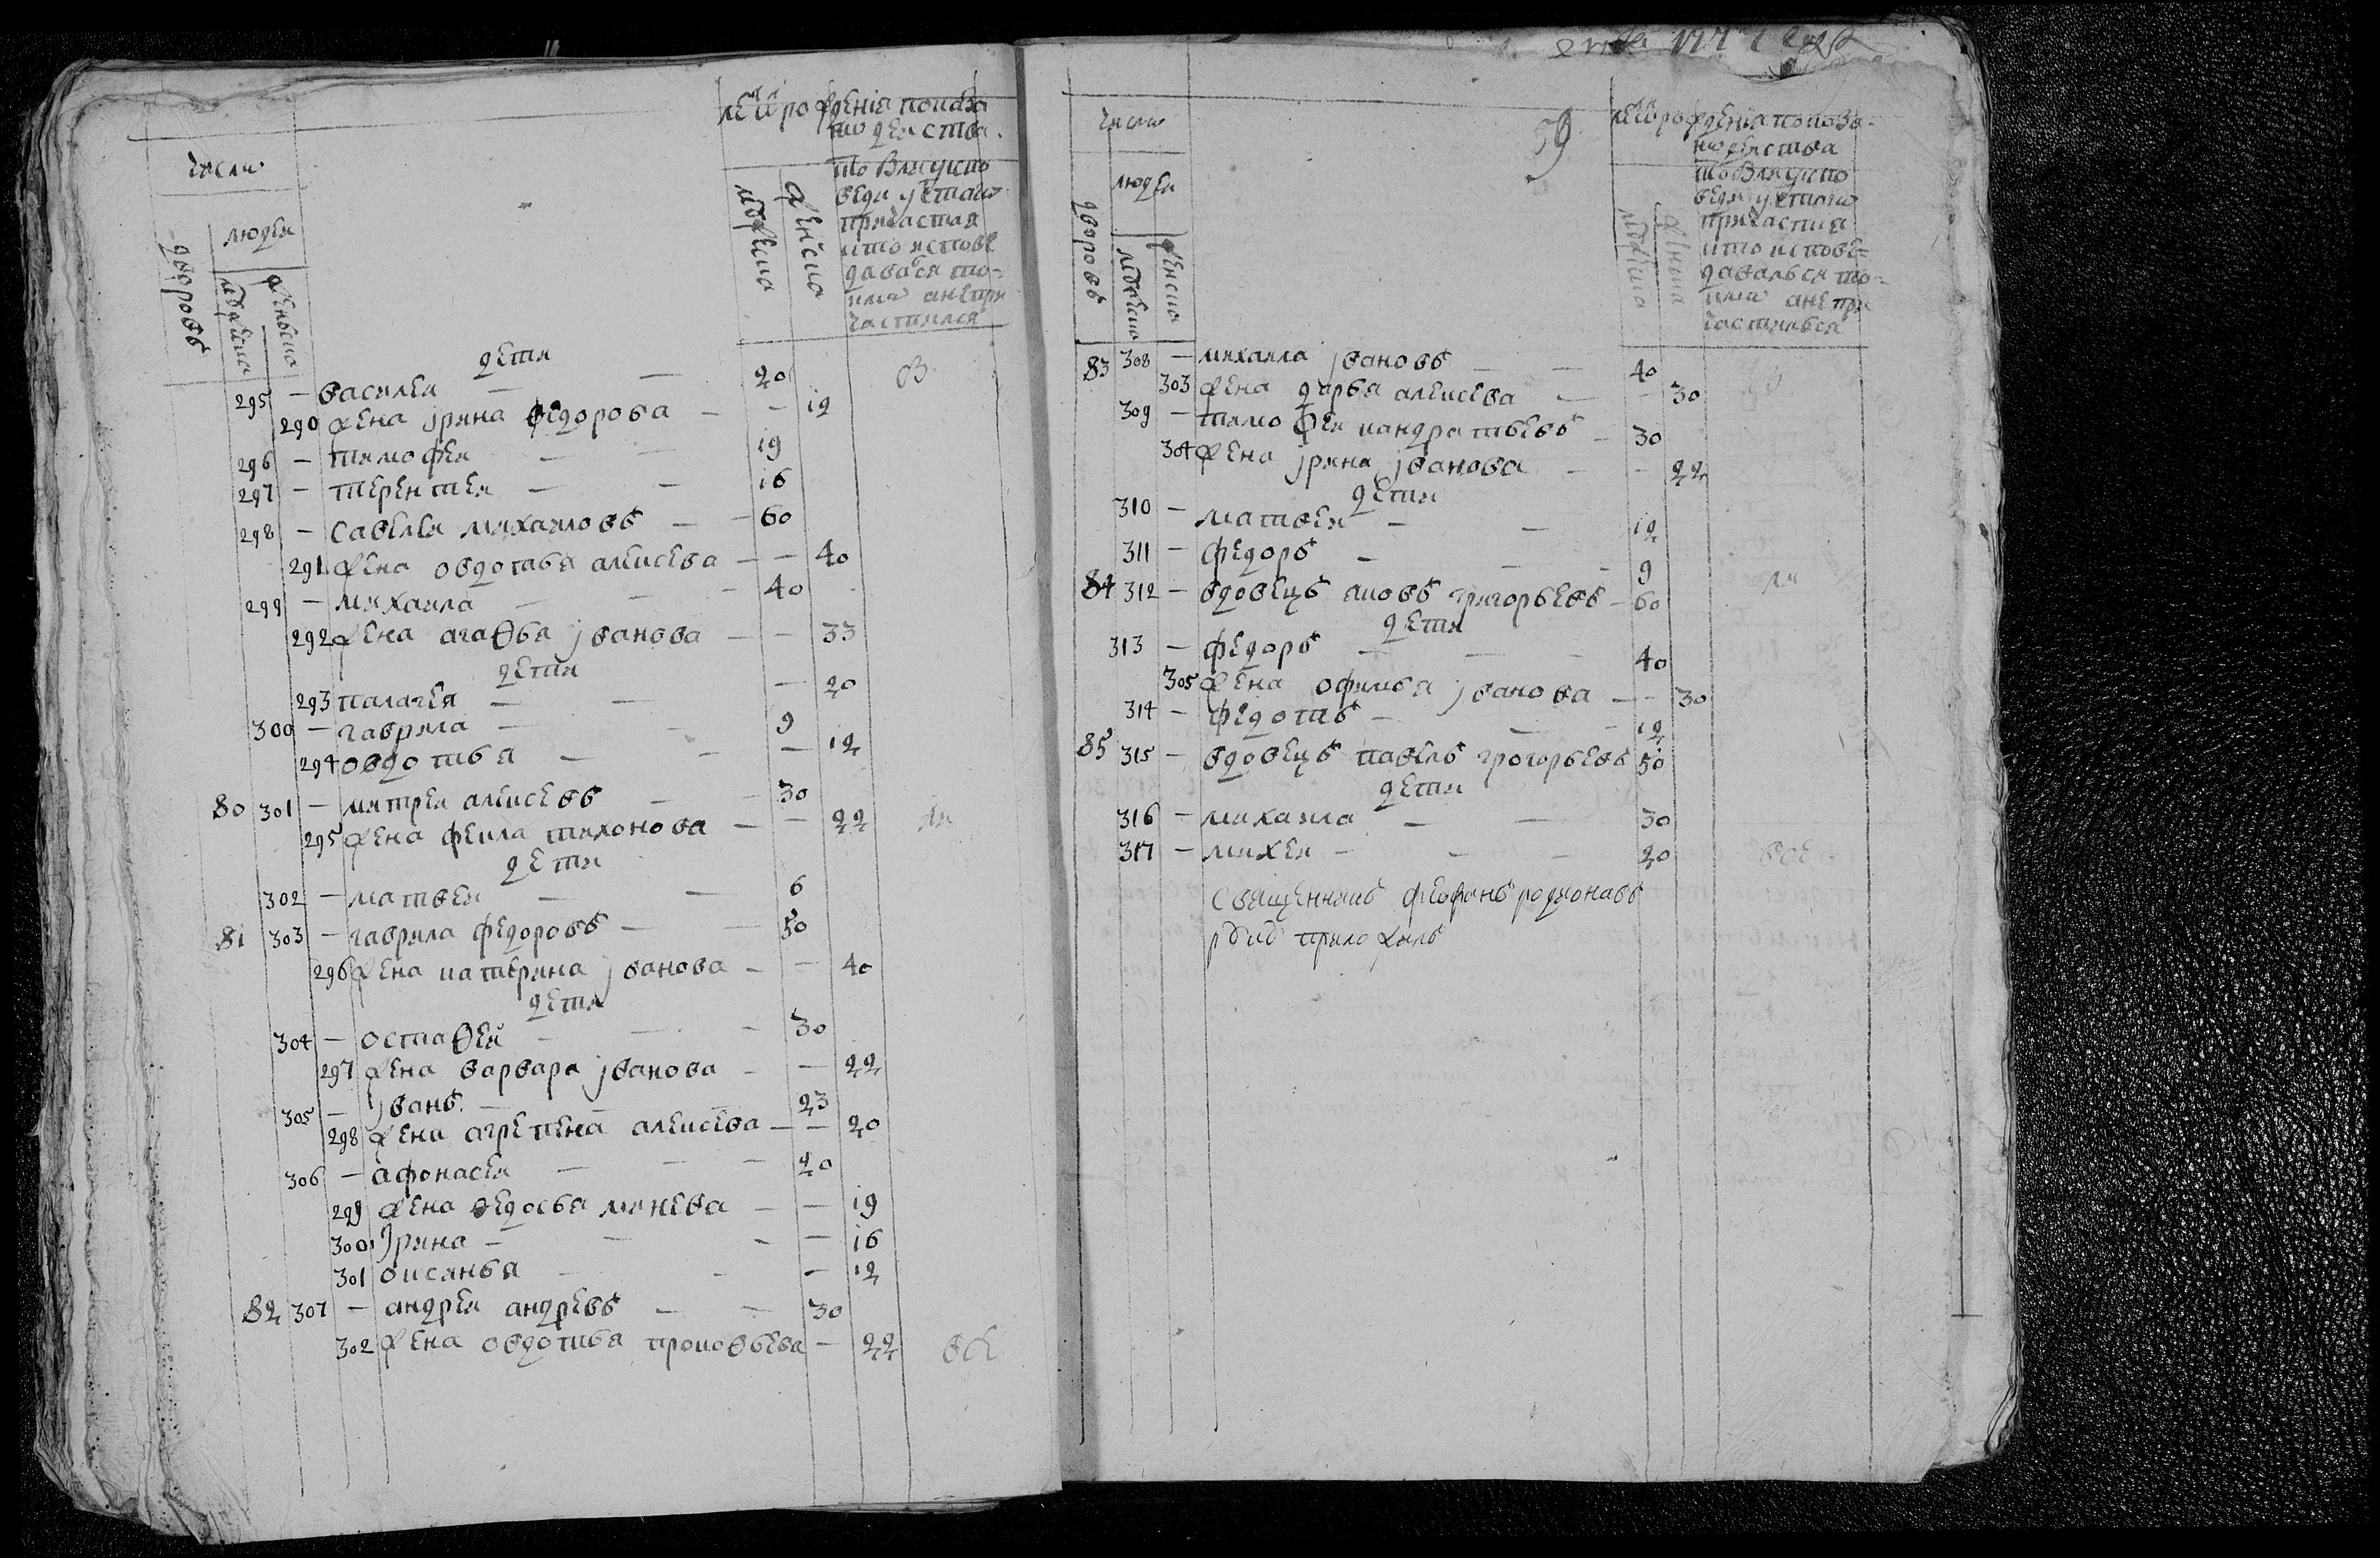 число
дворовъ
людеи
мужеска
женска
лета рождения показа
но женска
кто былъ у испо
веди у святаго
причастия
и кто испове
дався то=
кмо а не при
частился
дети
295 — василеи — — 20 в
290 жена ирина федорова — — 19
296 — тимофеи — — 19
297 — терентеи — — 16
298 — савелеи михаиловъ — — 60
291 жена овдотья алексева — — 40
299 — михаила — — 40
292 жена агафья ивановa — — 33
дети
293 палагея — — — 20
300 — гаврила — — 9
294 овдотья — — — 12
80 301 — митреи алексевъ — — 30
295 жена фекла тихонова — — 22
дети
302 — матвеи — — 6
81 303 — гаврила федоровъ — — 50
296 жена катерина иванова — — 40
дети
304 — остафеи — — — 30
297 жена варвара иванова — — 22
305 — иванъ — — 23
298 жена агрепена алексева — — 20
306 — афонасеи — — — 20
299 жена федосья минева — — 19
300 ирина — — — — 16
301 оксинья — — — 12
82 307 — андреи андревъ — — 30
302 жена овдотья прокофьева — 22
59
число
дворовъ
людеи
мужеска
женска
лета рождения показа=
кто былъ у испо
веди у святаго
причастия
и кто испове=
давался то=
кмо а не при
частился
83 308 — михаила ивановъ — — 40
303 жена дарья алексева — — 30
309 — тимофеи кандратьевъ — 30
304 жена ирина иванова — — 22
дети
310 — матвеи — — 12
311 — федоръ — — — 9
84 312 — вдовецъ яковъ григорьевъ — 60
дети
313 — федоръ — — — 40
305 жена офимья иванова — — 30
314 — федотъ — — — 12
85 315 — вдовецъ павелъ грогорьевъ 50
дети
316 — михаила — — 30
317 — михеи — — — 20
священникъ феофанъ родионавъ
руку приложилъ